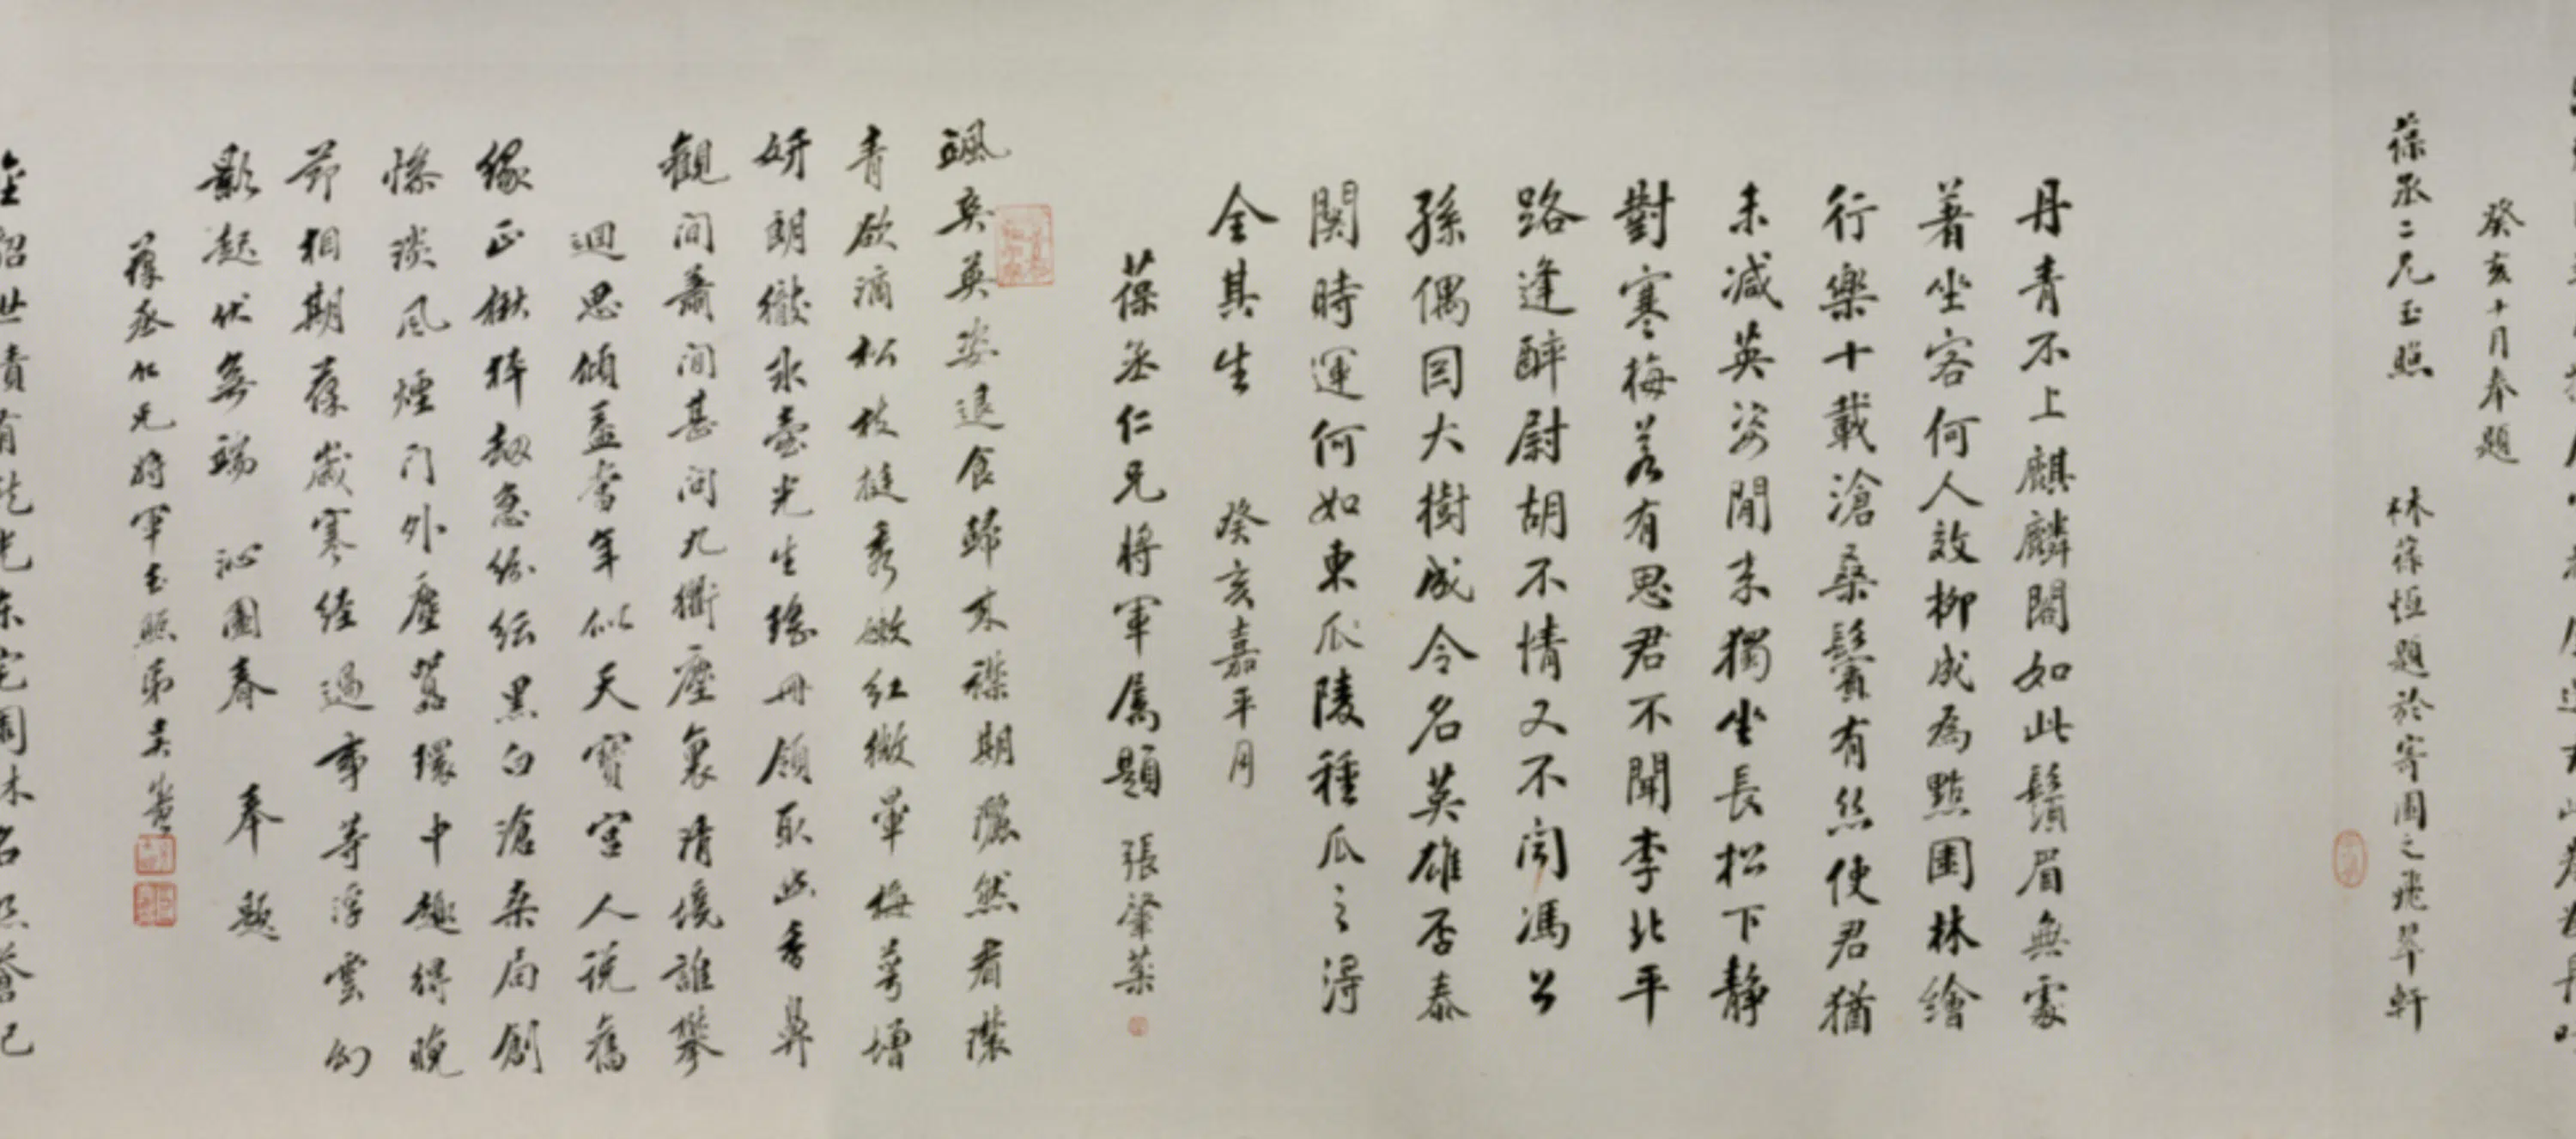 癸亥十月奉題
葆丞二兄玉照 林葆恆題於寄園之飛翠軒
丹青不上麒麟閣如此鬚眉無處
著坐客何人效柳成為點園林繪
行樂十載滄桑鬢有絲使君猶
未減英姿閒來獨坐長松下靜
對寒梅若有思君不聞李北平
路逢醉尉胡不情又不聞馮公
孫偶因大樹成令名英雄否泰
關時運何如東瓜陵種瓜之得
全其生 癸亥嘉平月
葆丞仁兄將軍屬題 張肇棻
颯爽英姿退食歸來襟期灑然看濃
青欲滴松枝挺秀嫩紅微暈梅萼增
妍朗徹氷壺光生瑤冊領取幽香鼻
觀間蕭閒甚問九衢塵裏清境誰攀
迴思傾蓋當年似天寶宮人說舊
緣正楸枰劫急紛紜黑白滄桑局創
慘淡風煙門外塵囂環中趣得晚
節相期葆歲寒經過事等浮雲幻
影起伏無端 沁園春 奉題
葆丞仁兄將軍玉照弟吳